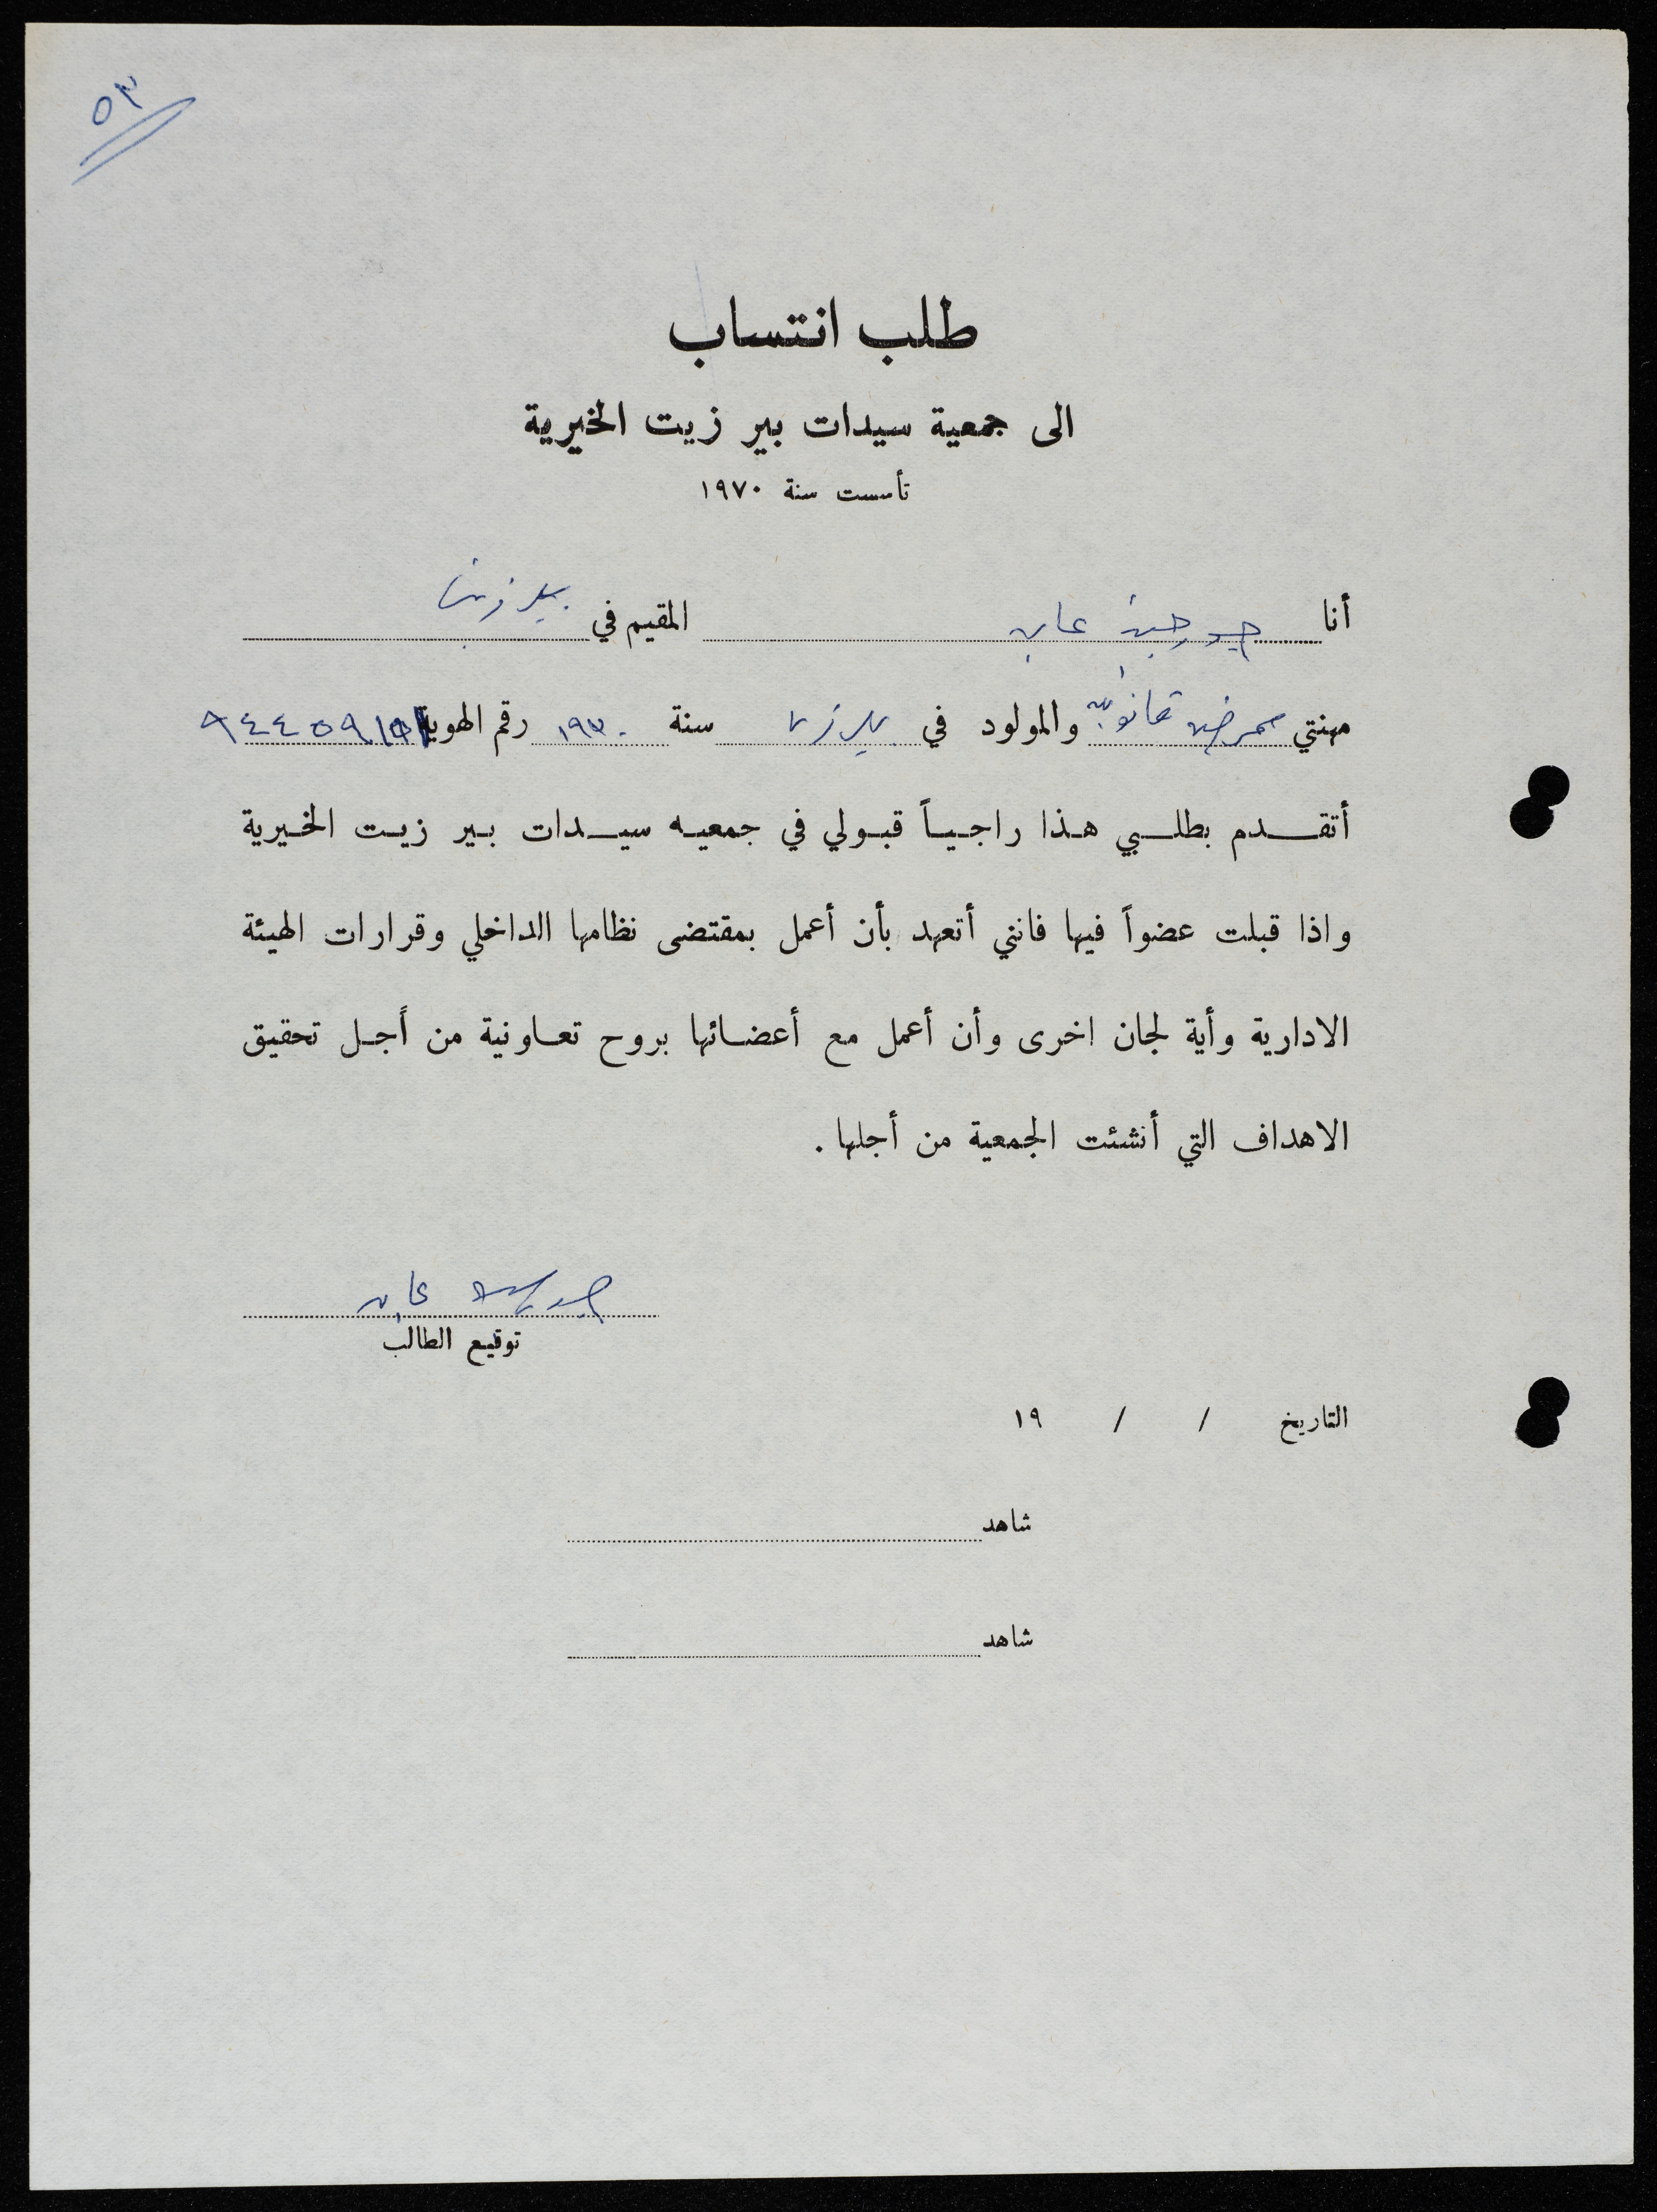 ٥٣
طلب انتساب
الى جمعية سيدات بير زيت الخيرية
تأسست سنة ١٩٧٠
أنا جورجيت عابد المقيم في بيرزيت
مهنتي ممرضة قانونية والمولود في بيرزيت سنة ١٩٣٠ رقم الهوية
أتقدم بطلبي هذا راجياً قبولي في جمعيه سيدات بير زيت الخيرية
واذا قبلت عضواً فيها فانني أتعهد بأن أعمل بمقتضى نظامها الداخلي وقرارات الهيئة
الادارية وأية لجان اخرى وأن أعمل مع أعضائها بروح تعاونية من أجل تحقيق
الاهداف التي أنشئت الجمعية من أجلها .
عابد
توقيع الطالب
التاريخ / / ١٩
شاهد
شاهد